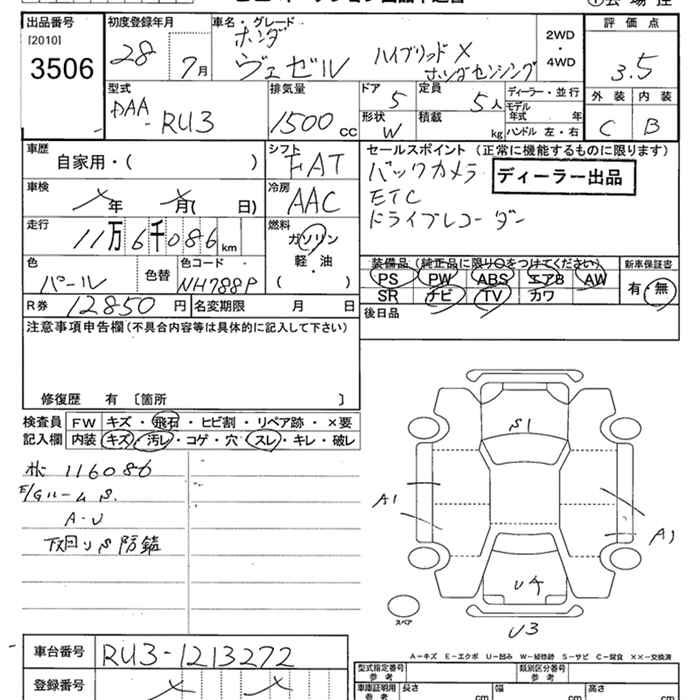 出品番号
[2010]
3506
初度登録年月
28 7月
車名・グレード
ホンダ
ヴェゼル
ハイブリッド X
ホンダセンシング
2WD
・
4WD
評価点
3.5
外装 内装
C B
型式
DAA-RU3
排気量
1500 cc
ドア
5
定員
5人
形状
W
積載
kg
ディーラー・並行
モデル
年式 年
ハンドル 左・右
車歴
自家用・( )
シフト
FAT
車検
年 月( 日)
冷房
AAC
走行
11万6千086km
燃料
ガソリン
軽・油
( )
色
パール
色替
色コード
NH788P
R券 12850円
名変期限 月 日
セールスポイント (正常に機能するものに限ります)
バックカメラ
ETC
ドライブレコーダー
ディーラー出品
装備品 (純正品に限り○をつけてください)
PS PW ABS エアB AW
SR ナビ TV カワ
新車保証書
有・無
後日品
注意事項申告欄(不具合内容等は具体的に記入して下さい)
修復歴 有 〔箇所 〕
検査員
記入欄
FW キズ・飛石・ヒビ割・リペア跡・×要
内装 キズ・汚レ・コゲ・穴・スレ・キレ・破レ
116086
E/Gルーム S.
A-U
下回りS防錆
S1
A1
A1
U4
U3
スペア
A=キズ E=エクボ U=凹み W=補修跡 S=サビ C=腐食 ××=交換済
車台番号
RU3-1213272
登録番号
型式指定番号
参考
類別区分番号
参考
車庫証明用
参考
長さ cm
幅 cm
高さ cm